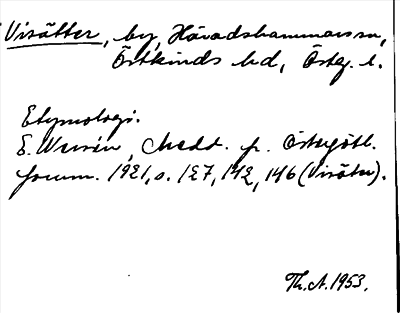 Visätter, by, Häradshammars sn,
Östkinds hd, Östg. l.
Etymologi.
E. Wessén, Medd. fr. Östergötl.
fornm. 1921, s. 127, 142, 146 (Visäter).
Th. A. 1953.